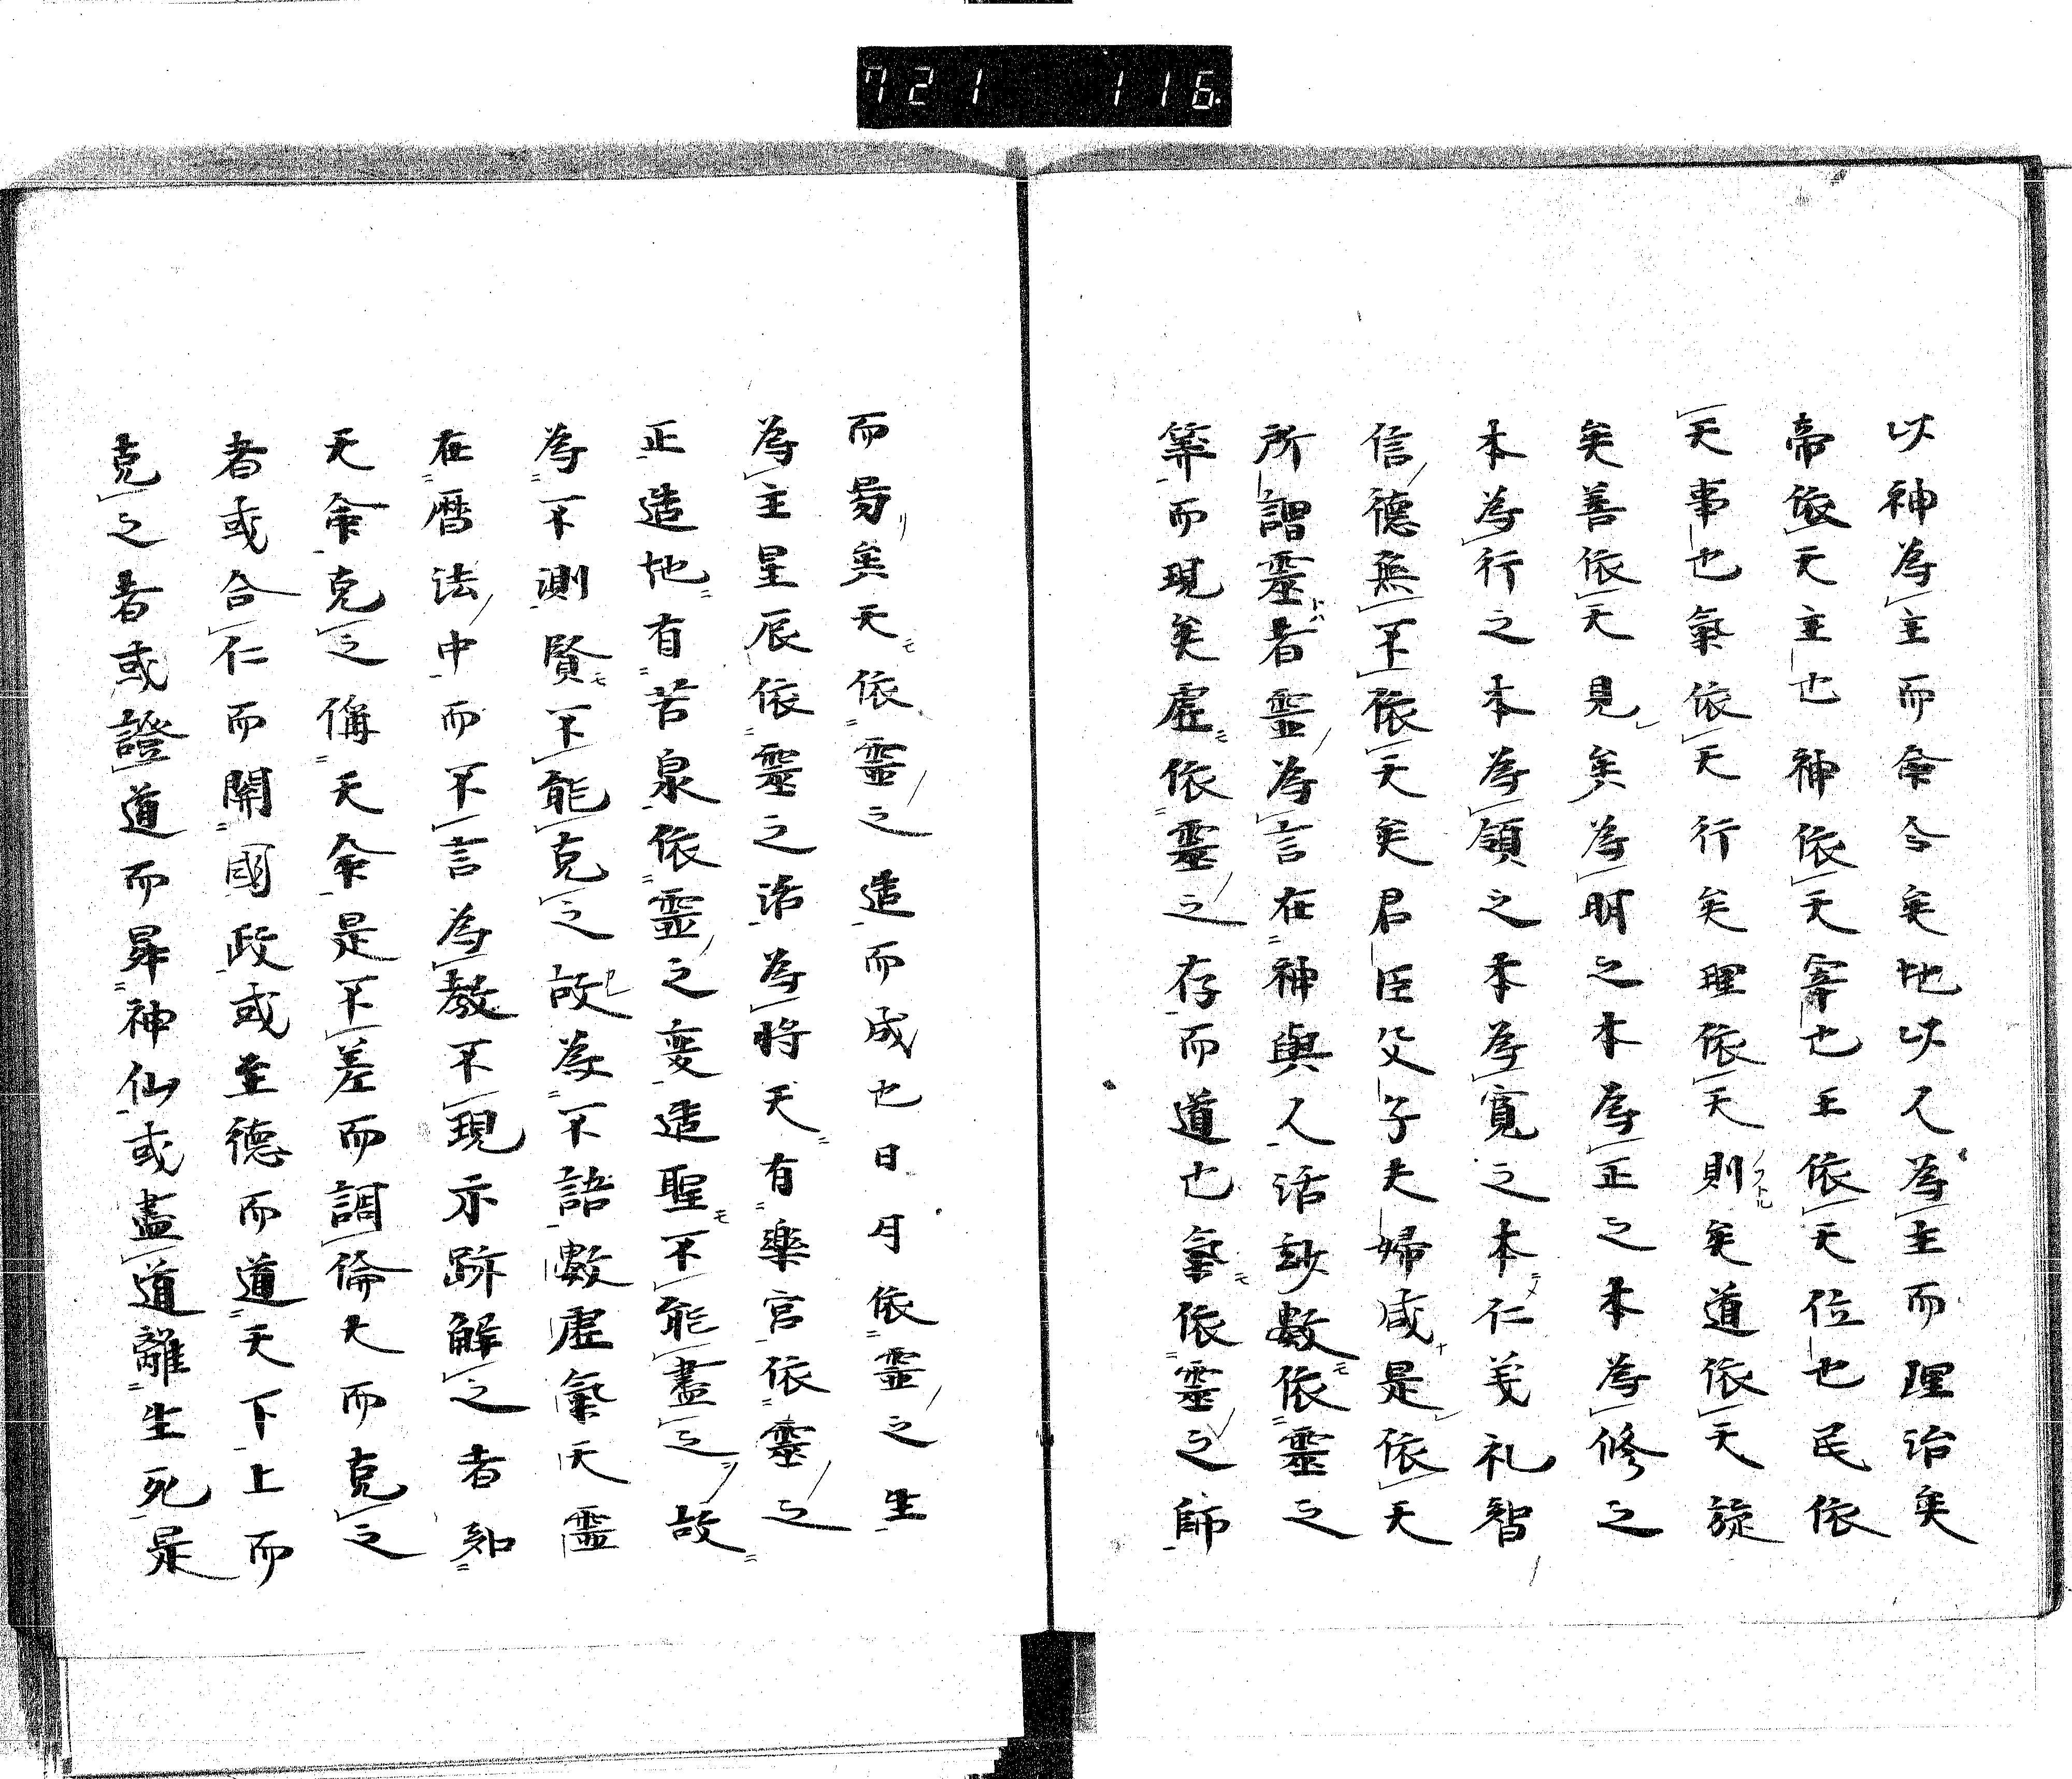 721 116.
以神為主而命令矣地以人為主而理治矣
帝依天主也神依天宰也王依天位也民依
天事也氣依天行矣理依天則矣道依天旋
矣善依天見矣為明之本為正之本為修之
本為行之本為領之本為寬之本仁義礼智
信德無不依天矣君臣父子夫婦咸是依天
所謂靈者靈為言在神與人活妙數依靈之
筭而現矣虛依靈之存而道也氣依靈之師
而易矣天依靈之造而成也日月依靈之生
為主星辰依靈之活為時天有樂宮依靈之
正造地有苦泉依靈之変造聖不能盡之故
為不測賢不能克之故為不語數虛氣天靈
在曆法中而不言為教不現示跡解之者知
天命克之偁天命是不差而調倫大而克之
者或合仁而開國政或至德而道天下上而
克之者或證道而昇神仙或盡道離生死是